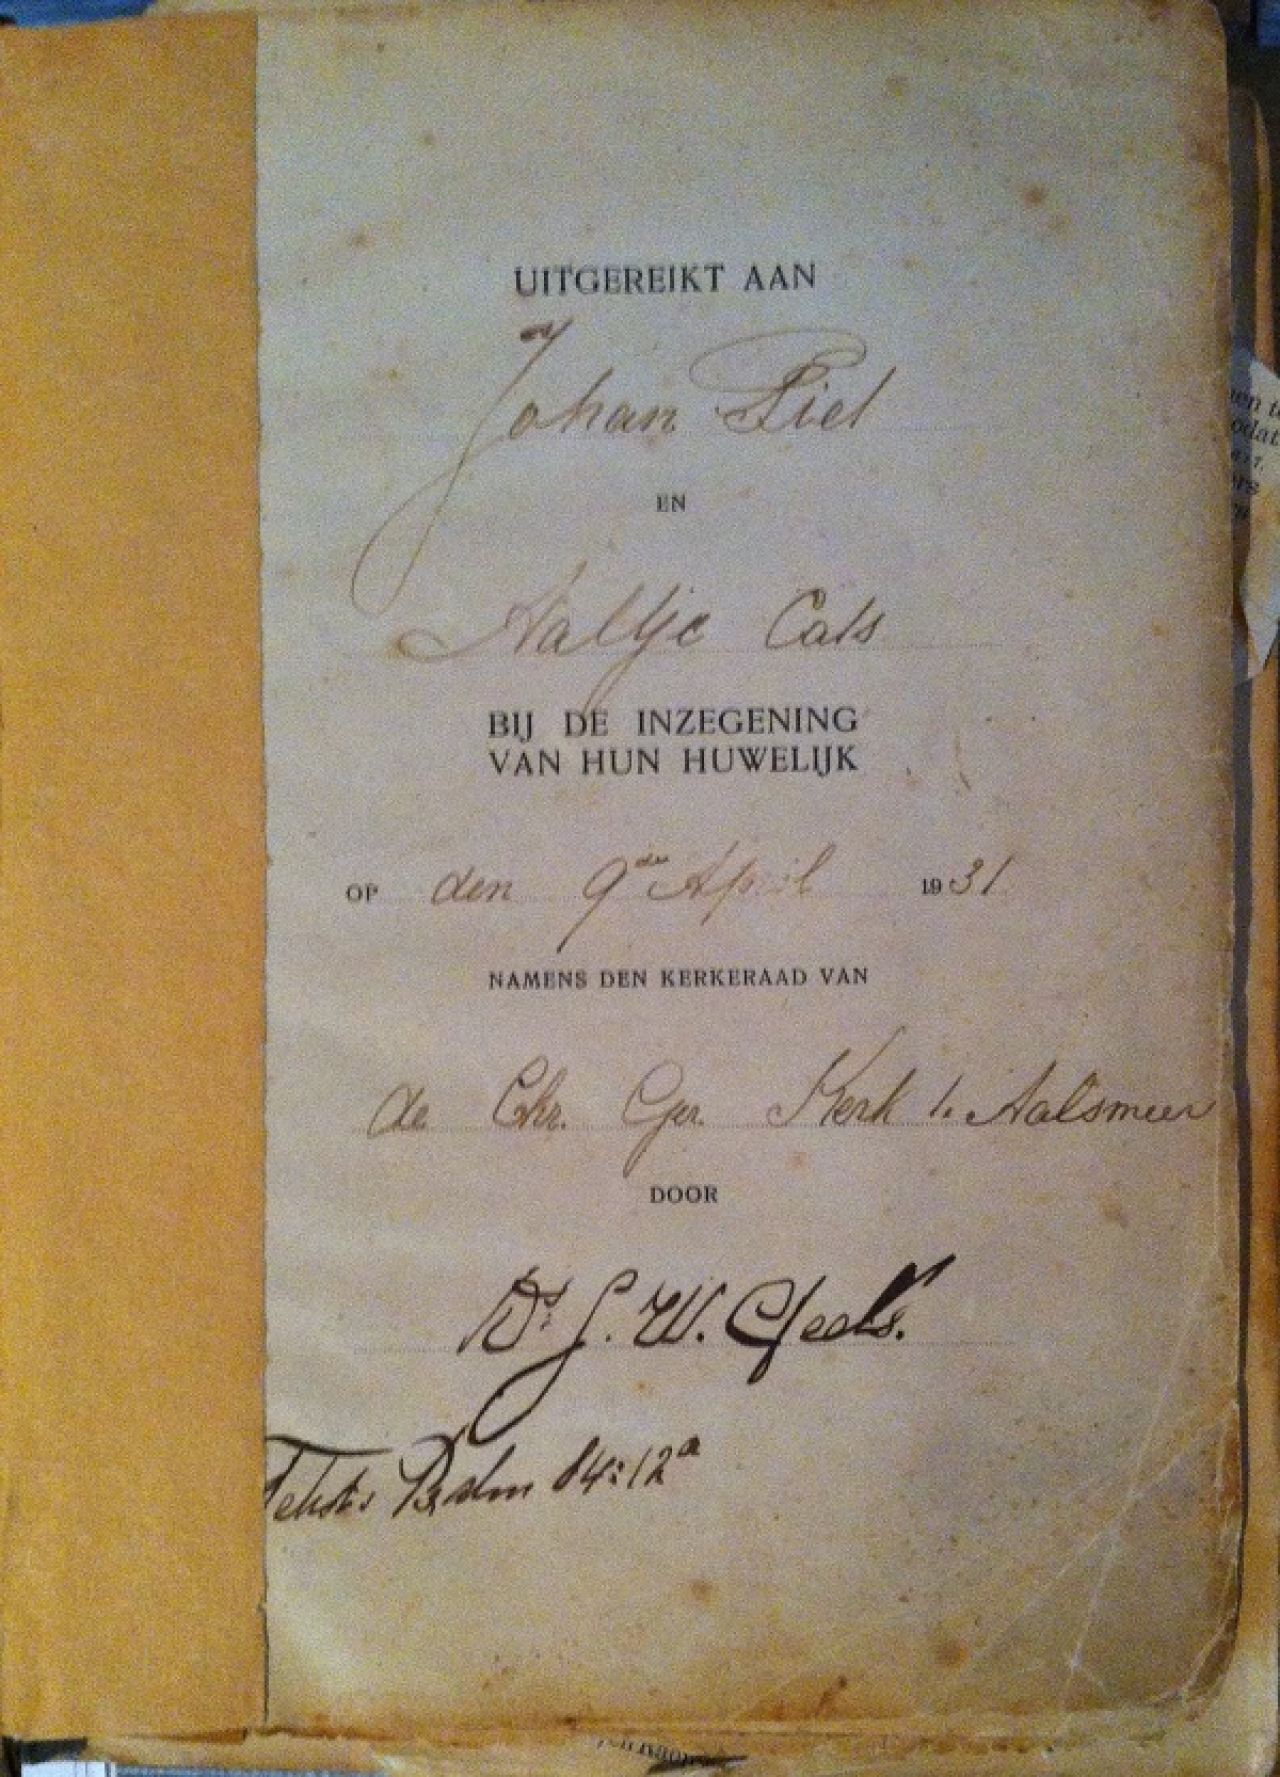 UITGEREIKT AAN
Johan Piel
EN
Aaltje Cats
BIJ DE INZEGENING
VAN HUN HUWELIJK
OP den 9de April 1931
NAMENS DEN KERKERAAD VAN
de Chr. Ger. Kerk te Aalsmeer
DOOR
Ds J. W. Geels.
Tekst: Psalm 84:12a